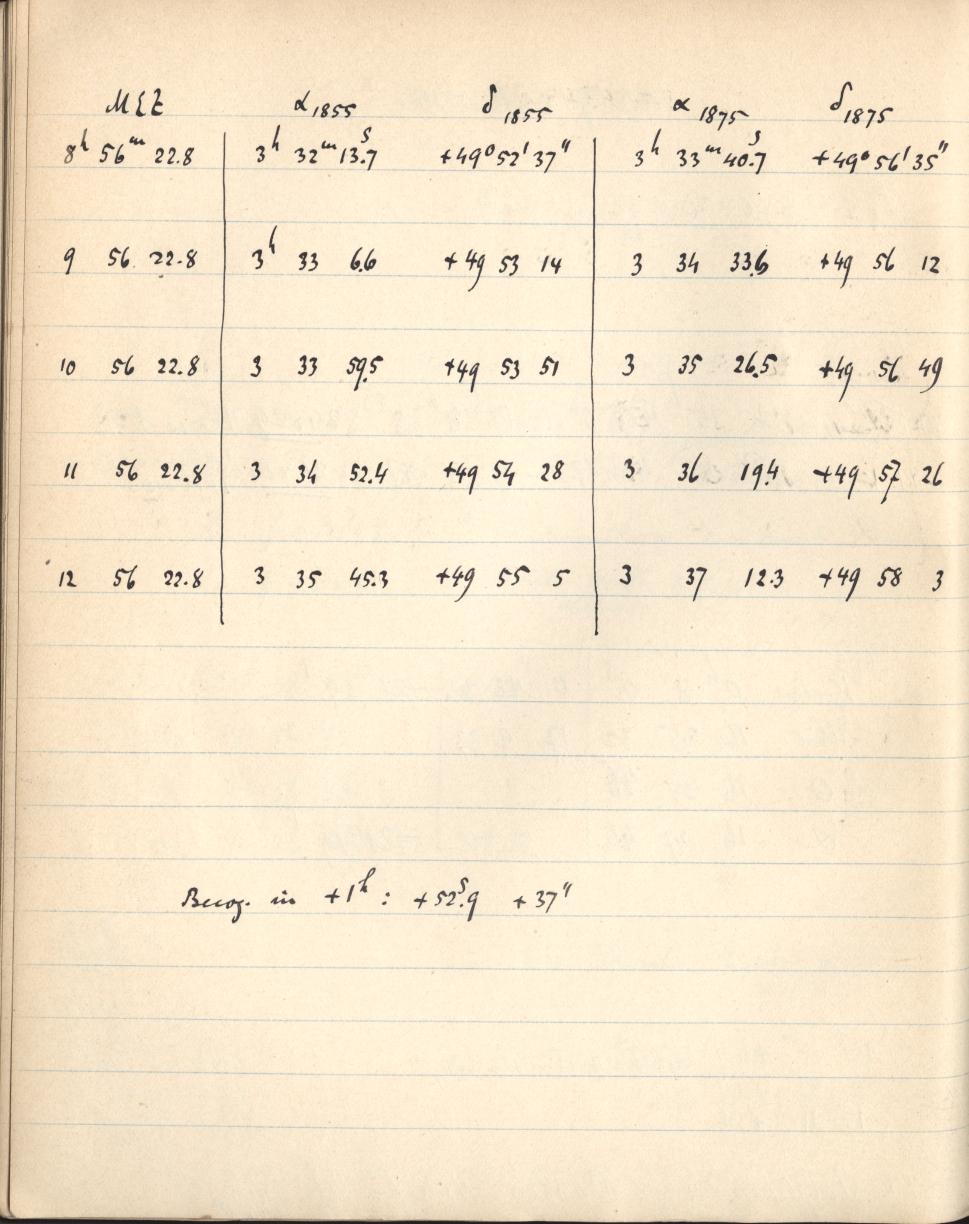 MEZ α 1855 δ 1855 α 1875 δ 1875
8ʰ 56ᵐ 22.8 3ʰ 32ᵐ 13ˢ.7 +49° 52' 37" 3ʰ 33ᵐ 40ˢ.7 +49° 56' 35"
9 56 22.8 3ʰ 33 6.6 +49 53 14 3 34 33.6 +49 56 12
10 56 22.8 3 33 59.5 +49 53 51 3 35 26.5 +49 56 49
11 56 22.8 3 34 52.4 +49 54 28 3 36 19.4 +49 57 26
12 56 22.8 3 35 45.3 +49 55 5 3 37 12.3 +49 58 3
Beweg. in +1ʰ : +52ˢ.9 +37"